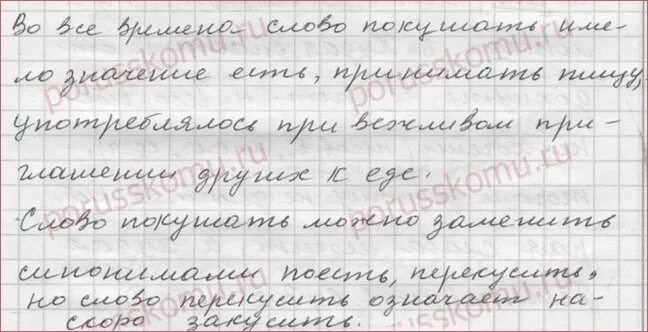 Во все времена слово покушать име-
ло значение есть, принимать пищу,
употреблялось при вежливом при-
глашении других к еде.
Слово покушать можно заменить
синонимами поесть, перекусить,
но слово перекусить означает на-
скоро закусить.
porusskomu.ru
porusskomu.ru
porusskomu.ru
porusskomu.ru